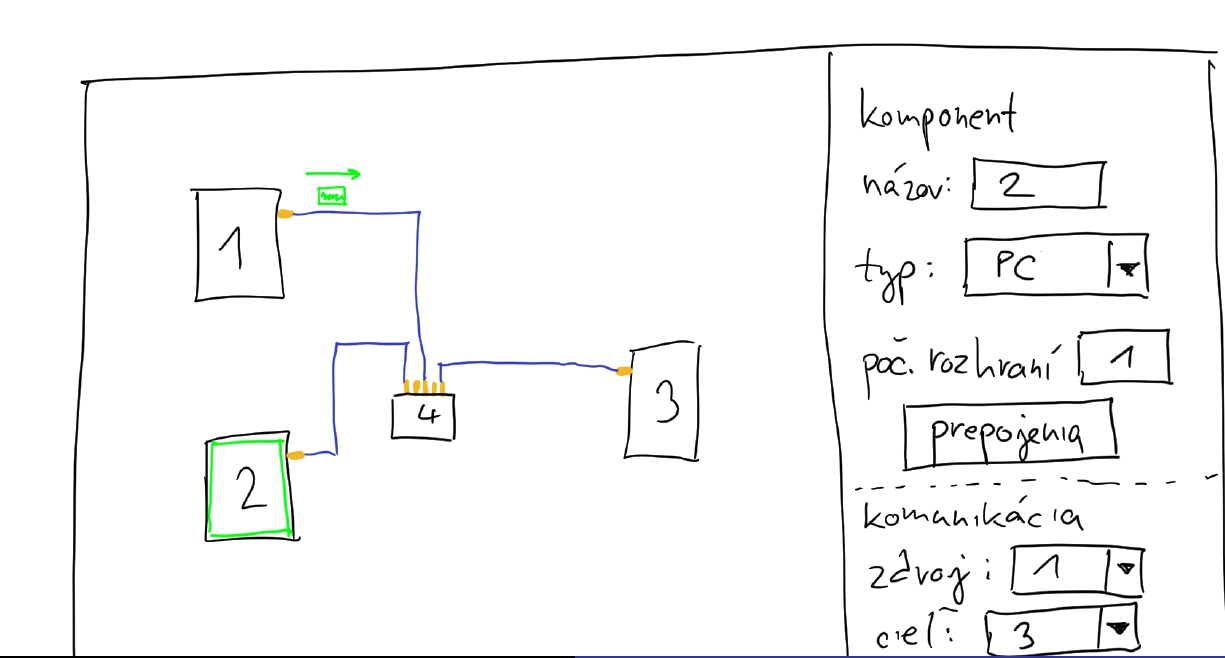 komponent
názov: 2
typ: PC
poč. rozhraní 1
prepojenia
komunikácia
zdroj: 1
cieľ: 3
1
2
4
3